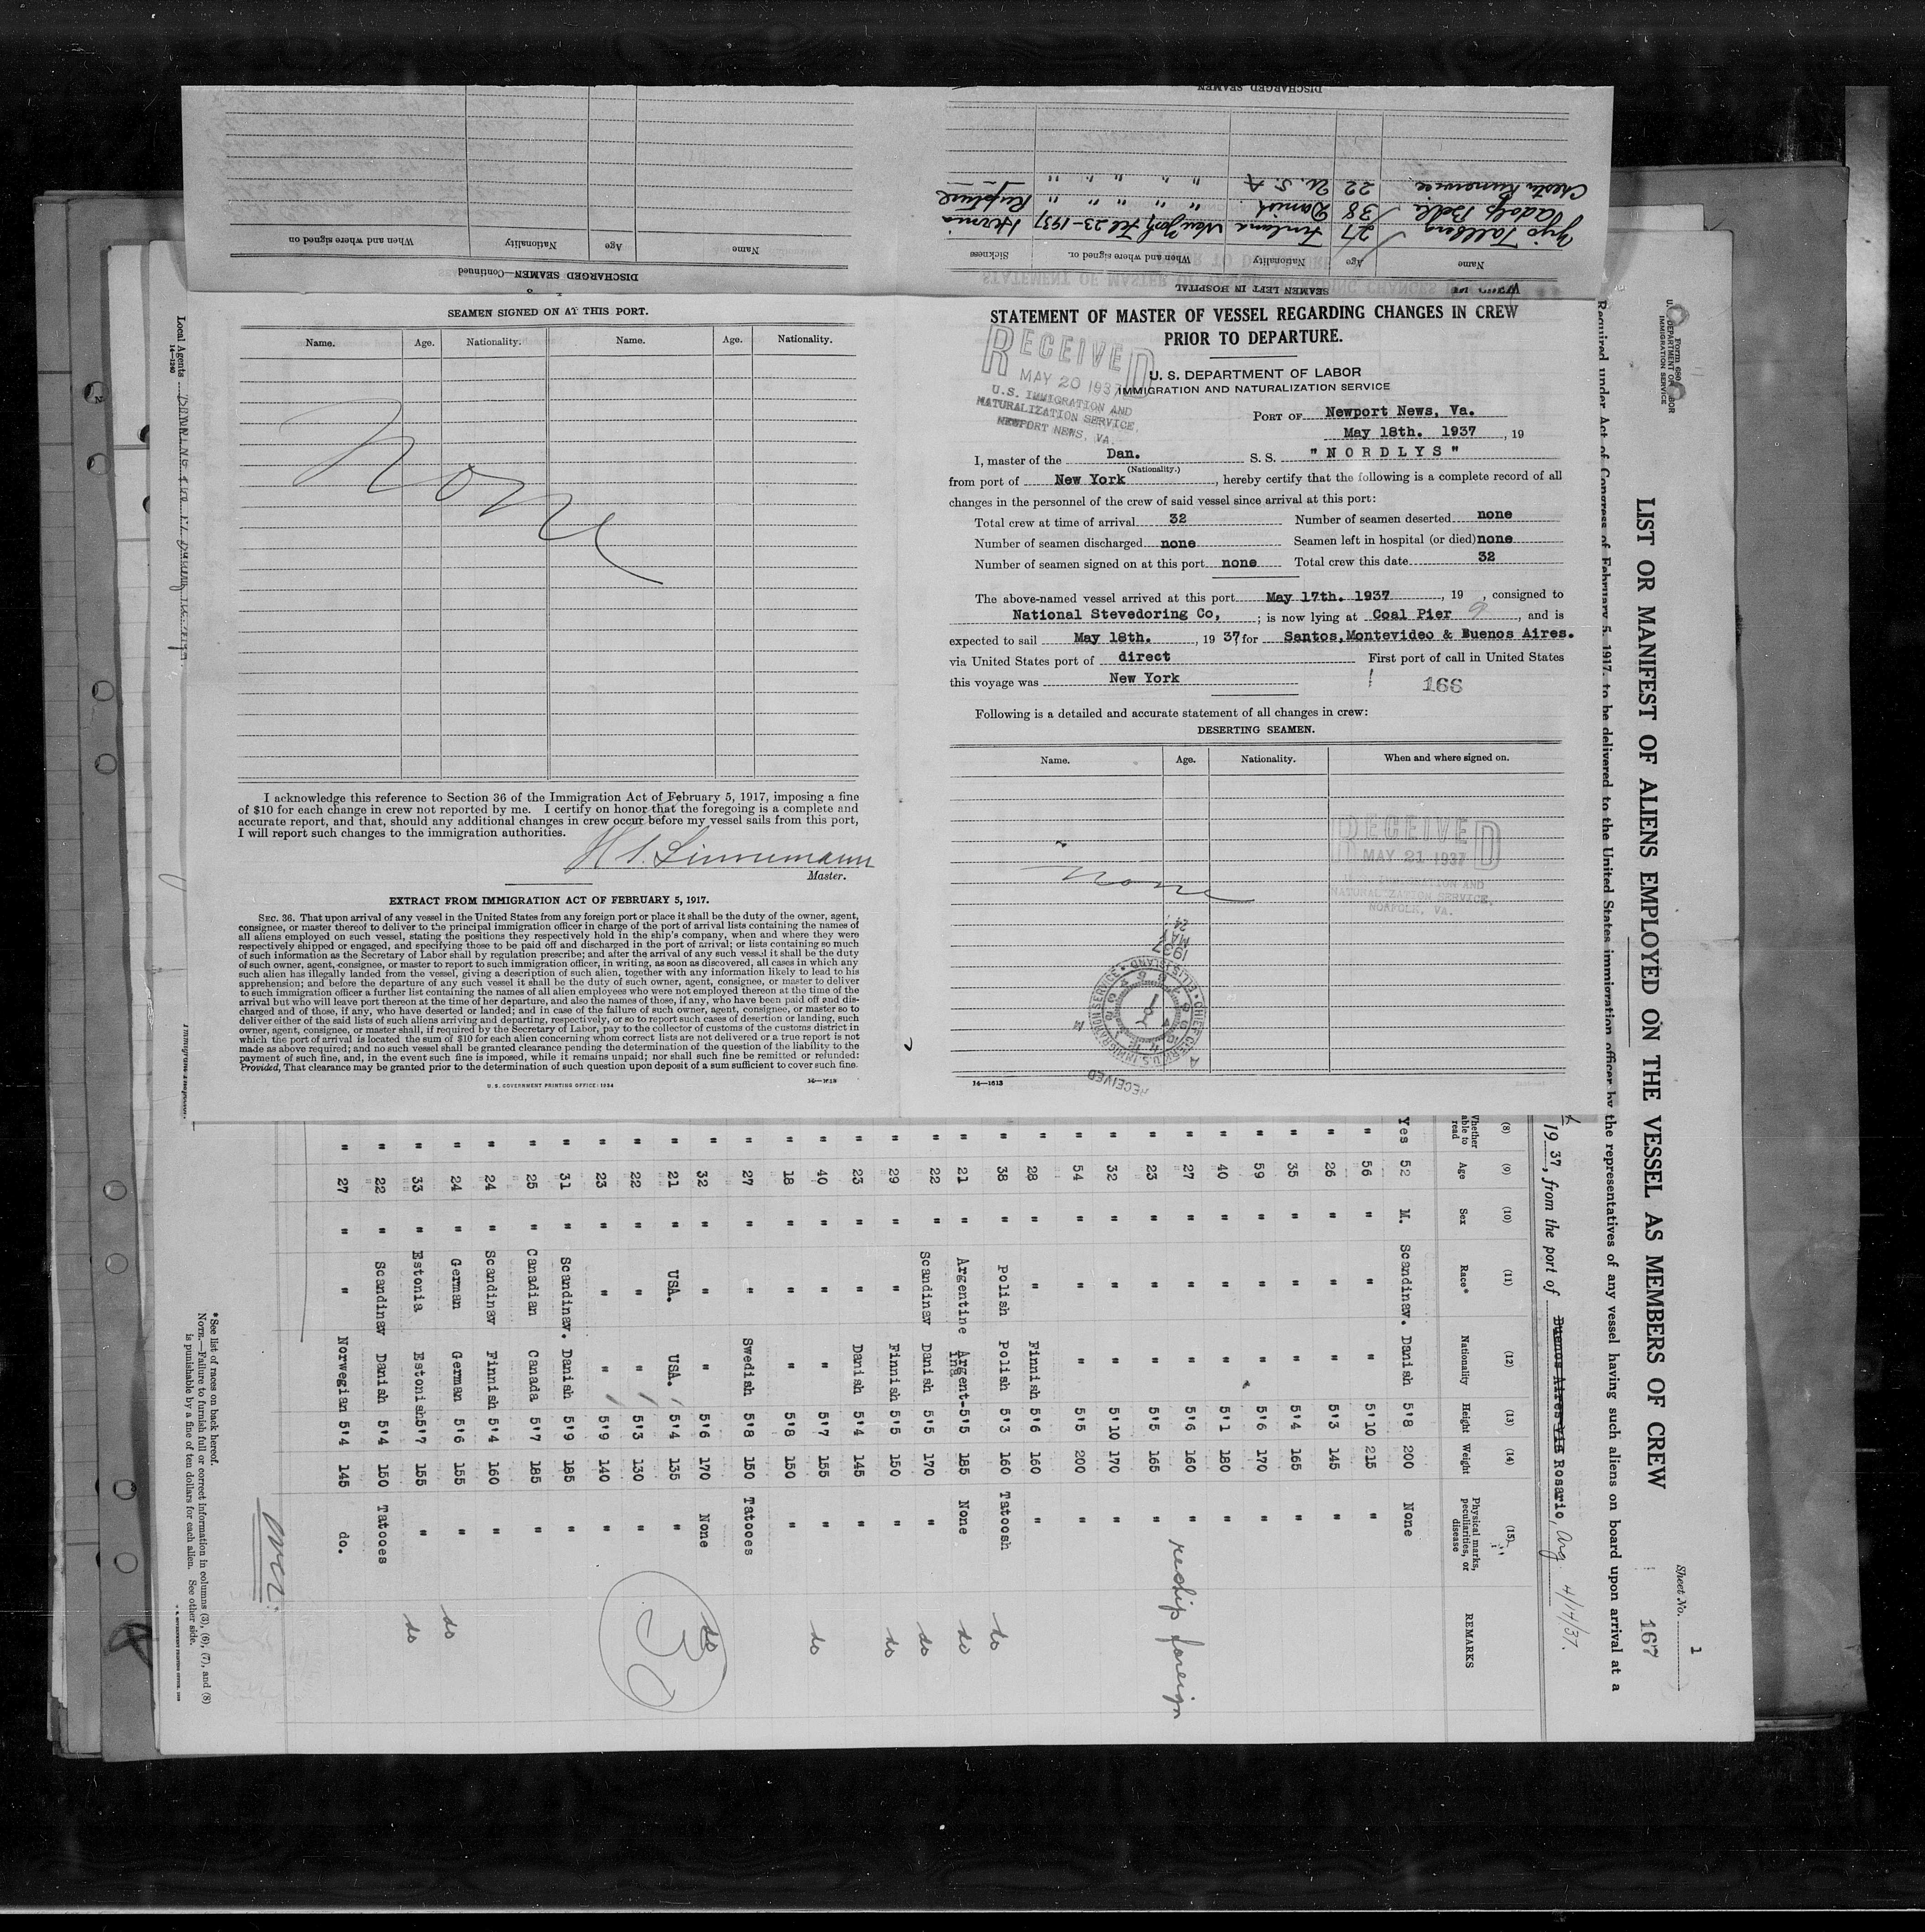 DISCHARGED SEAMEN
Chester
22
U. S. A
" " " " "
Adolf
38
Danish
" " " " "
Rupture
27
Finland
New York Feb 23-1937
Hernia
Name
Age
Nationality
When and where signed on.
Sickness
SEAMEN LEFT IN HOSPITAL
Name
Age
Nationality
When and where signed on
DISCHARGED SEAMEN—Continued
SEAMEN SIGNED ON AT THIS PORT.
Name. Age. Nationality. Name. Age. Nationality.
None
I acknowledge this reference to Section 36 of the Immigration Act of February 5, 1917, imposing a fine
of $10 for each change in crew not reported by me. I certify on honor that the foregoing is a complete and
accurate report, and that, should any additional changes in crew occur before my vessel sails from this port,
I will report such changes to the immigration authorities.
H S. Linnemann
Master.
EXTRACT FROM IMMIGRATION ACT OF FEBRUARY 5, 1917.
SEC. 36. That upon arrival of any vessel in the United States from any foreign port or place it shall be the duty of the owner, agent,
consignee, or master thereof to deliver to the principal immigration officer in charge of the port of arrival lists containing the names of
all aliens employed on such vessel, stating the positions they respectively hold in the ship's company, when and where they were
respectively shipped or engaged, and specifying those to be paid off and discharged in the port of arrival; or lists containing so much
of such information as the Secretary of Labor shall by regulation prescribe; and after the arrival of any such vessel it shall be the duty
of such owner, agent, consignee, or master to report to such immigration officer, in writing, as soon as discovered, all cases in which any
such alien has illegally landed from the vessel, giving a description of such alien, together with any information likely to lead to his
apprehension; and before the departure of any such vessel it shall be the duty of such owner, agent, consignee, or master to deliver
to such immigration officer a further list containing the names of all alien employees who were not employed thereon at the time of the
arrival but who will leave port thereon at the time of her departure, and also the names of those, if any, who have been paid off and dis-
charged and of those, if any, who have deserted or landed; and in case of the failure of such owner, agent, consignee, or master so to
deliver either of the said lists of such aliens arriving and departing, respectively, or so to report such cases of desertion or landing, such
owner, agent, consignee, or master shall, if required by the Secretary of Labor, pay to the collector of customs of the customs district in
which the port of arrival is located the sum of $10 for each alien concerning whom correct lists are not delivered or a true report is not
made as above required; and no such vessel shall be granted clearance pending the determination of the question of the liability to the
payment of such fine, and, in the event such fine is imposed, while it remains unpaid; nor shall such fine be remitted or refunded:
Provided, That clearance may be granted prior to the determination of such question upon deposit of a sum sufficient to cover such fine.
U. S. GOVERNMENT PRINTING OFFICE: 1934
14—1613
STATEMENT OF MASTER OF VESSEL REGARDING CHANGES IN CREW
PRIOR TO DEPARTURE.
RECEIVED
MAY 20 1937
U.S. IMMIGRATION AND
NATURALIZATION SERVICE,
NEWPORT NEWS, VA.
U. S. DEPARTMENT OF LABOR
IMMIGRATION AND NATURALIZATION SERVICE
PORT OF Newport News, Va.
May 18th. 1937, 19
I, master of the Dan. S. S. "NORDLYS"
(Nationality.)
from port of New York, hereby certify that the following is a complete record of all
changes in the personnel of the crew of said vessel since arrival at this port:
Total crew at time of arrival 32 Number of seamen deserted none
Number of seamen discharged none Seamen left in hospital (or died) none
Number of seamen signed on at this port none Total crew this date 32
The above-named vessel arrived at this port May 17th. 1937, 19 , consigned to
National Stevedoring Co, ; is now lying at Coal Pier 9, and is
expected to sail May 18th., 1937, for Santos, Montevideo & Buenos Aires.
via United States port of direct First port of call in United States
this voyage was New York
166
Following is a detailed and accurate statement of all changes in crew:
DESERTING SEAMEN.
Name. Age. Nationality. When and where signed on.
RECEIVED
MAY 21 1937
NATURALIZATION SERVICE,
NORFOLK, VA.
None
1937
MAY
24
CHIEF CLERK U.S. IMMIGRATION SERVICE • ELLIS ISLAND
RECEIVED
14—1613
Form 680
U. S. DEPARTMENT OF LABOR
IMMIGRATION SERVICE
Sheet No. 1
LIST OR MANIFEST OF ALIENS EMPLOYED ON THE VESSEL AS MEMBERS OF CREW
167
Required under Act of Congress of February 5, 1917, to be delivered to the United States immigration officer by the representatives of any vessel having such aliens on board upon arrival at a
1937, from the port of Buenos Aires via Rosario, Arg 4/14/37.
(8) (9) (10) (11) (12) (13) (14) (15)
Whether able to read Age Sex Race* Nationality Height Weight Physical marks, peculiarities, or disease REMARKS
Yes 52 M. Scandinav. Danish 5'8 200 None
" 56 " " " 5'10 215 "
" 26 " " " 5'3 145 "
" 35 " " " 5'4 165 "
" 59 " " " 5'6 170 "
" 40 " " " 5'1 180 "
" 27 " " " 5'6 160 " reship foreign
" 23 " " " 5'5 165 "
" 32 " " " 5'10 170 "
" 54 " " " 5'5 200 "
" 28 " " Finnish 5'6 160 "
" 38 " Polish Polish 5'3 160 Tatoosh do
" 21 " Argentine Argent-ine 5'5 185 None do
" 22 " Scandinav Danish 5'5 170 " do
" 29 " " Finnish 5'5 150 " do
" 23 " " Danish 5'4 145 "
" 40 " " " 5'7 155 " do
" 18 " " " 5'8 150 "
" 27 " " Swedish 5'8 150 Tatooes
" 32 " " " 5'6 170 None do
" 21 " USA. USA. 5'4 135 "
" 22 " " " 5'3 130 "
" 23 " " " 5'9 140 "
" 31 " Scandinav. Danish 5'9 185 "
" 25 " Canadian Canada 5'7 185 "
" 24 " Scandinav Finnish 5'4 160 "
" 24 " German German 5'6 155 " do
" 33 " Estonia Estonish 5'7 155 " do
" 22 " Scandinav Danish 5'4 150 Tatooes
" 27 " " Norwegian 5'4 145 do.
30
over.
*See list of races on back hereof.
NOTE.—Failure to furnish full or correct information in columns (3), (6), (7), and (8)
is punishable by a fine of ten dollars for each alien. See other side.
Local Agents
14—1240
Immigrant Inspector.